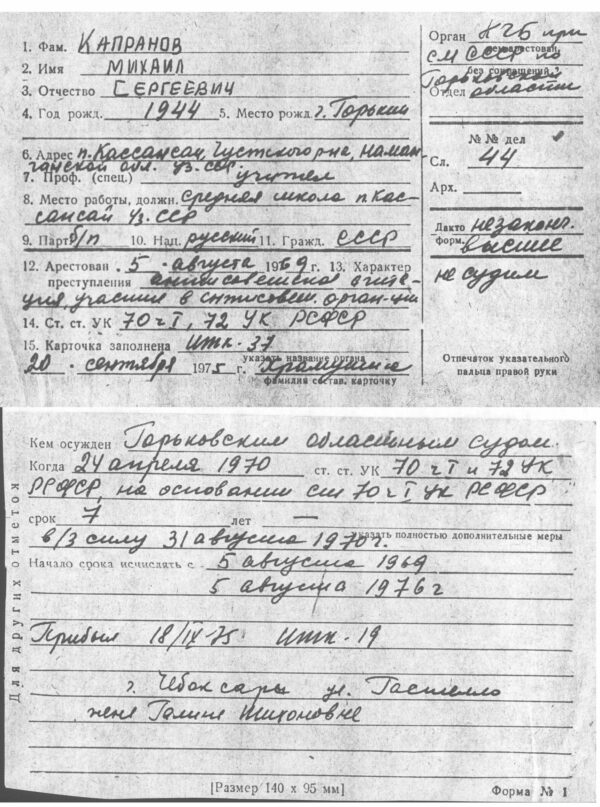 1. Фам. КАПРАНОВ
2. Имя МИХАИЛ
3. Отчество СЕРГЕЕВИЧ
4. Год рожд. 1944 5. Место рожд. г. Горький
6. Адрес п. Кассансай, Чустского р-на, Наман-
ганской обл. Уз. ССР
7. Проф. (спец.) учител
8. Место работы, должн. средняя школа п. Кас-
сансай Уз. ССР
9. Парт. б/п 10. Нац. русский 11. Гражд. СССР
12. Арестован 5 августа 1969 г. 13. Характер
преступления антисоветская агита-
ция, участие в антисовет. орган-ции
14. Ст. ст. УК 70 ч I, 72 УК РСФСР
15. Карточка заполнена ИТК-37
указать название органа
20 сентября 1975 г.
фамилия состав. карточку
Орган КГБ при
СМ СССР по
без сокращений
Горьковской
Отдел области
№ № дел
Сл. 44
Арх.
Дакто незаконч.
форм. высшее
не судим
Отпечаток указательного
пальца правой руки
Для других отметок
Кем осужден Горьковским областным судом
Когда 24 апреля 1970 ст. ст. УК 70 ч I и 72 УК
РСФСР, на основании ст 70 ч I УК РСФСР
срок 7 лет —
указать полностью дополнительные меры
в/з силу 31 августа 1970 г.
Начало срока исчислять с 5 августа 1969
5 августа 1976 г
Прибыл 18/IX-75 ИТК-19
г. Чебоксары ул. Гастелло
жене Галине Тихоновне
[Размер 140 х 95 мм] Форма № 1